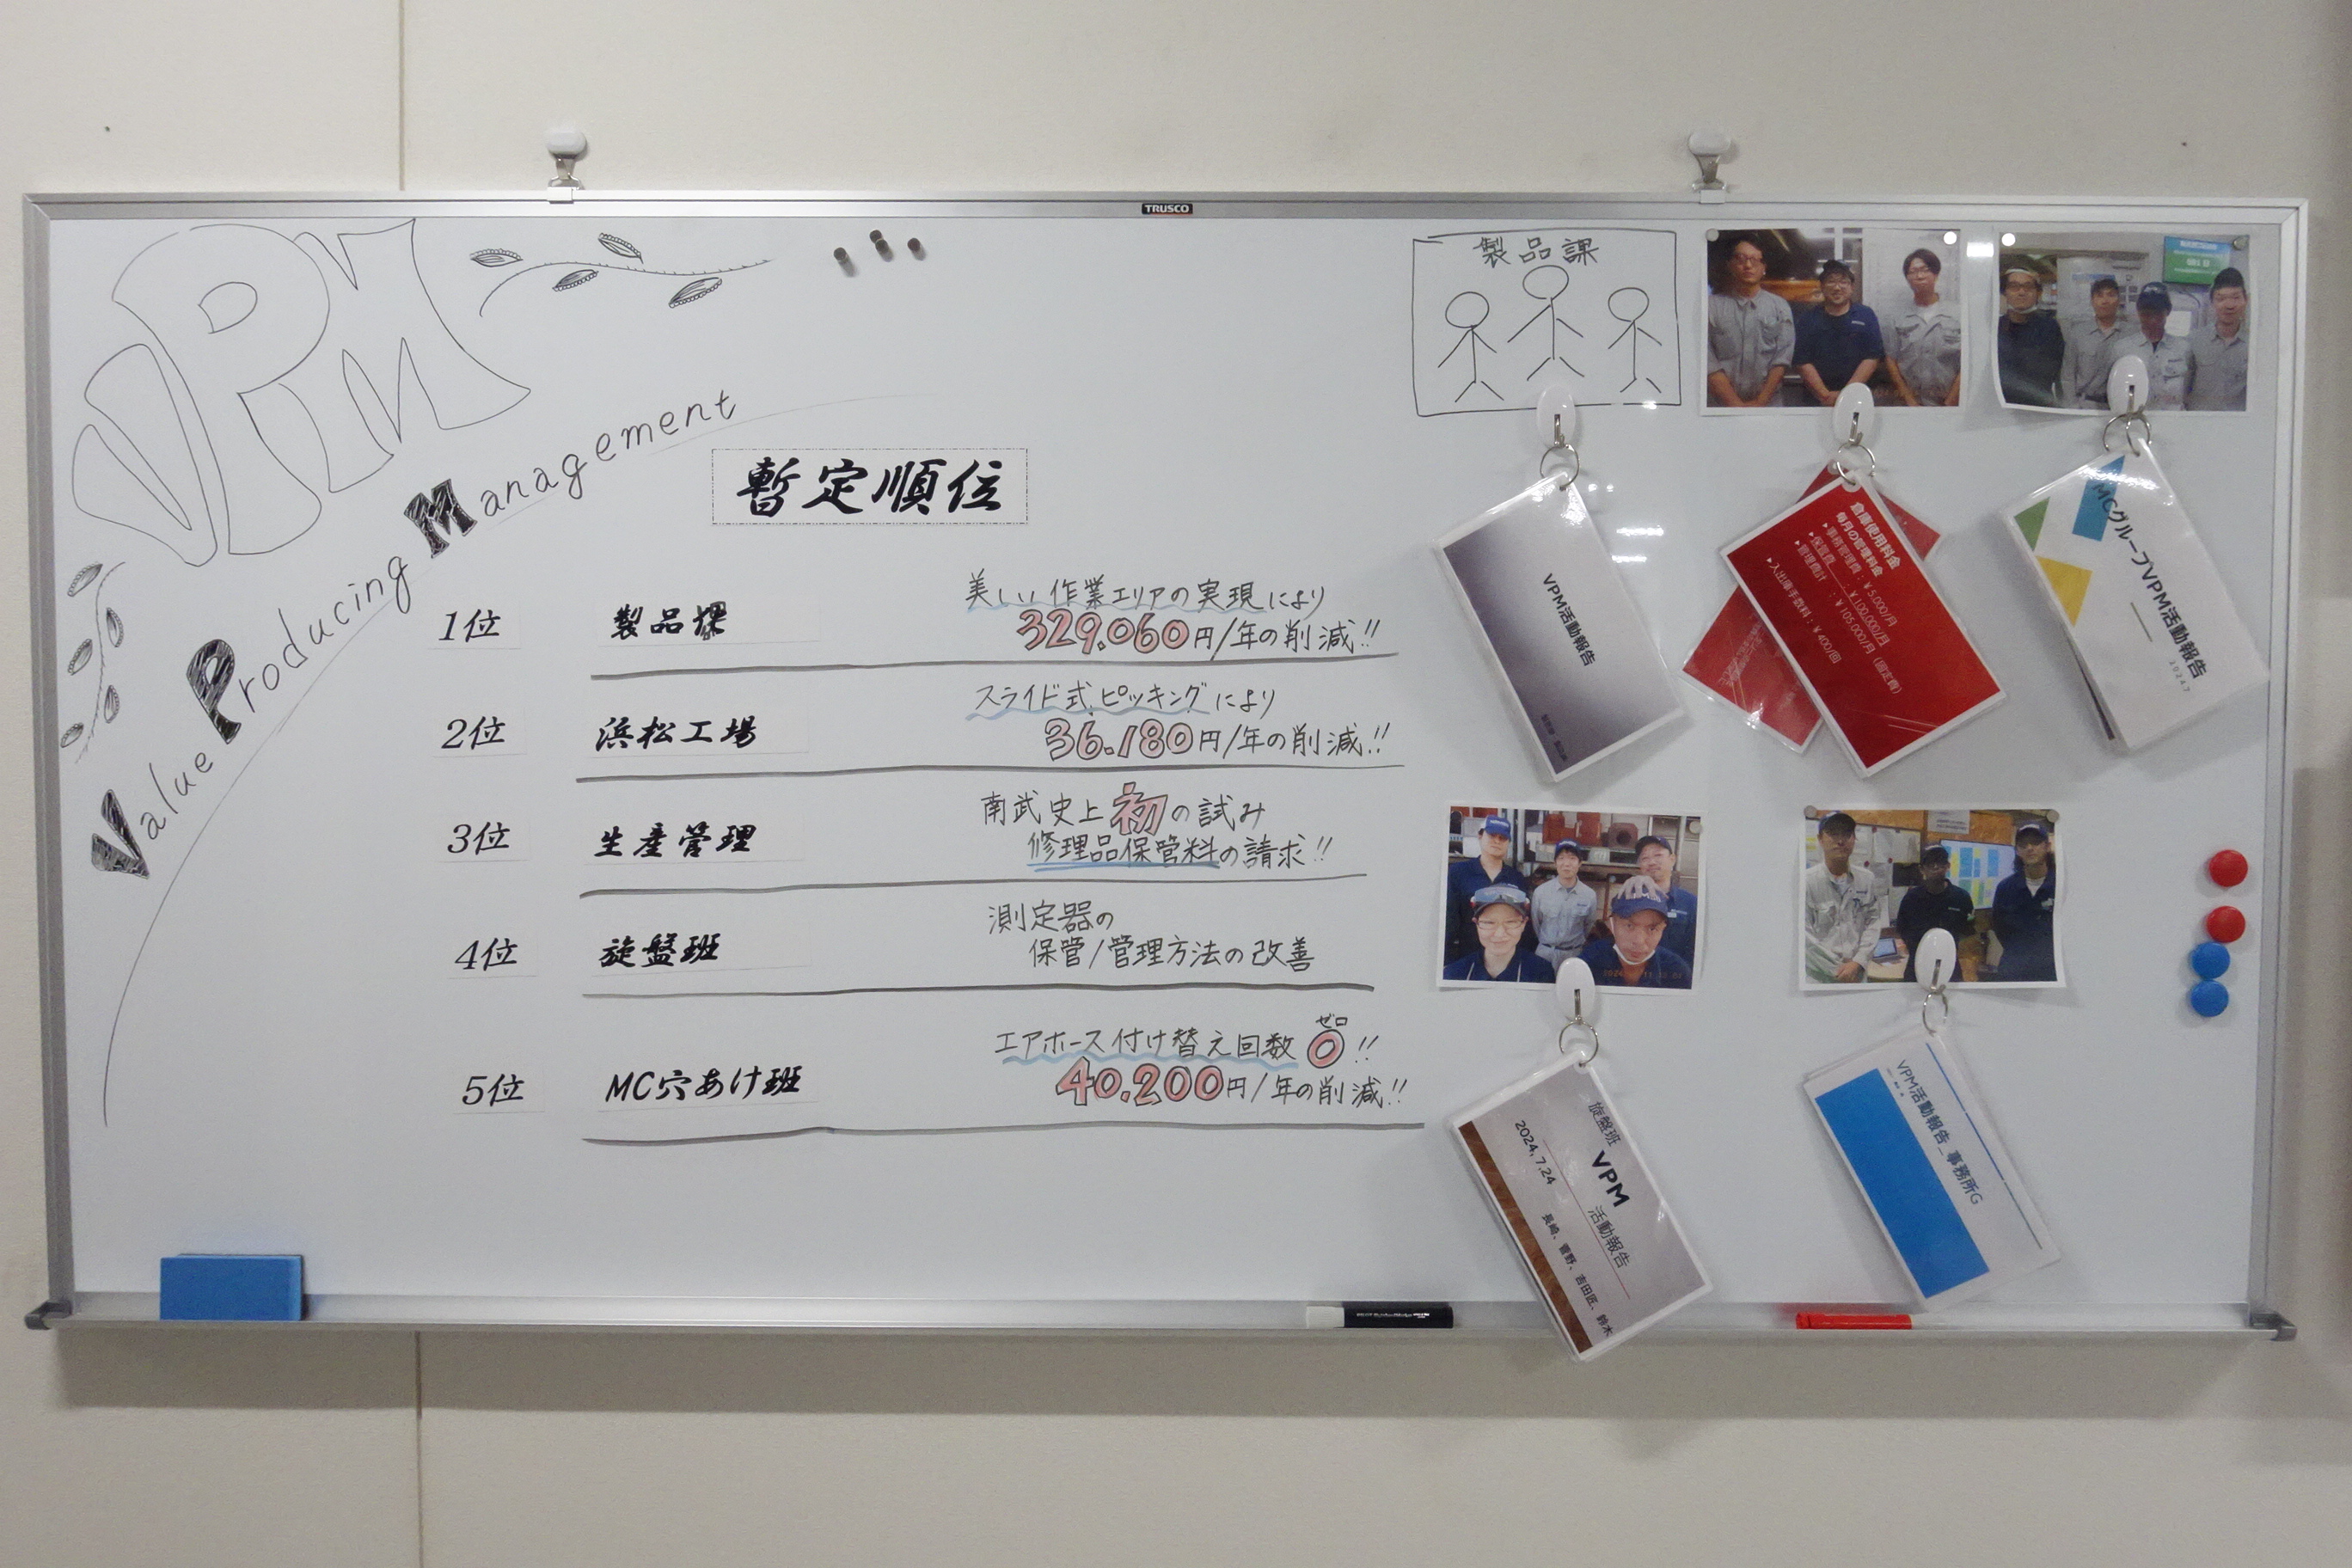 TRUSCO
VPM
Value Producing Management
暫定順位
1位 製品課
美しい作業エリアの実現により
329.060円/年の削減!!
2位 浜松工場
スライド式ピッキングにより
36.180円/年の削減!!
3位 生産管理
南武史上初の試み
修理品保管料の請求!!
4位 旋盤班
測定器の
保管/管理方法の改善
5位 MC穴あけ班
ゼロ
エアホース付け替え回数 0!!
40.200円/年の削減!!
製品課
VPM活動報告
倉庫使用料金
毎月の管理料金
▸事務管理費:¥5,000/月
▸保管費:¥100,000/月
▸管理費計:¥105,000/月(固定費)
▸入出庫手数料:¥400/回
MCグループVPM活動報告
2024.7
旋盤班
VPM
活動報告
2024.7.24
長崎、菅野、吉田匠、鈴木
VPM活動報告_事務所G